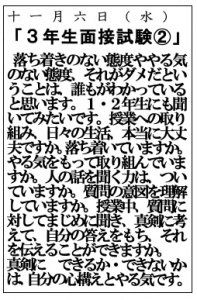 十一月六日（水）
「３年生面接試験②」
落ち着きのない態度ややる気
のない態度、それがダメだとい
うことは、誰もがわかっている
と思います。１・２年生にも聞
いてみたいです。授業への取り
組み、日々の生活、本当に大丈
夫ですか。落ち着いていますか。
やる気をもって取り組んでいま
すか。人の話を聞く力は、つい
ていますか。質問の意図を理解
していますか。授業中、質問に
対してまじめに聞き、真剣に考
えて、自分の答えをもち、それ
を伝えることができますか。
真剣に できるか・できないか
は、自分の心構えとやる気です。